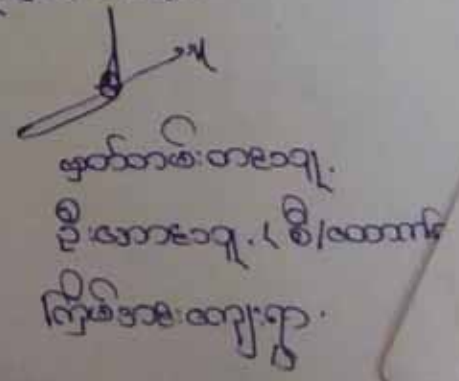 မှတ်တမ်းတင်သူ
ဦးအောင်သူ (စီ/ထောက်
ကြိမ်အေးကျေးရွာ